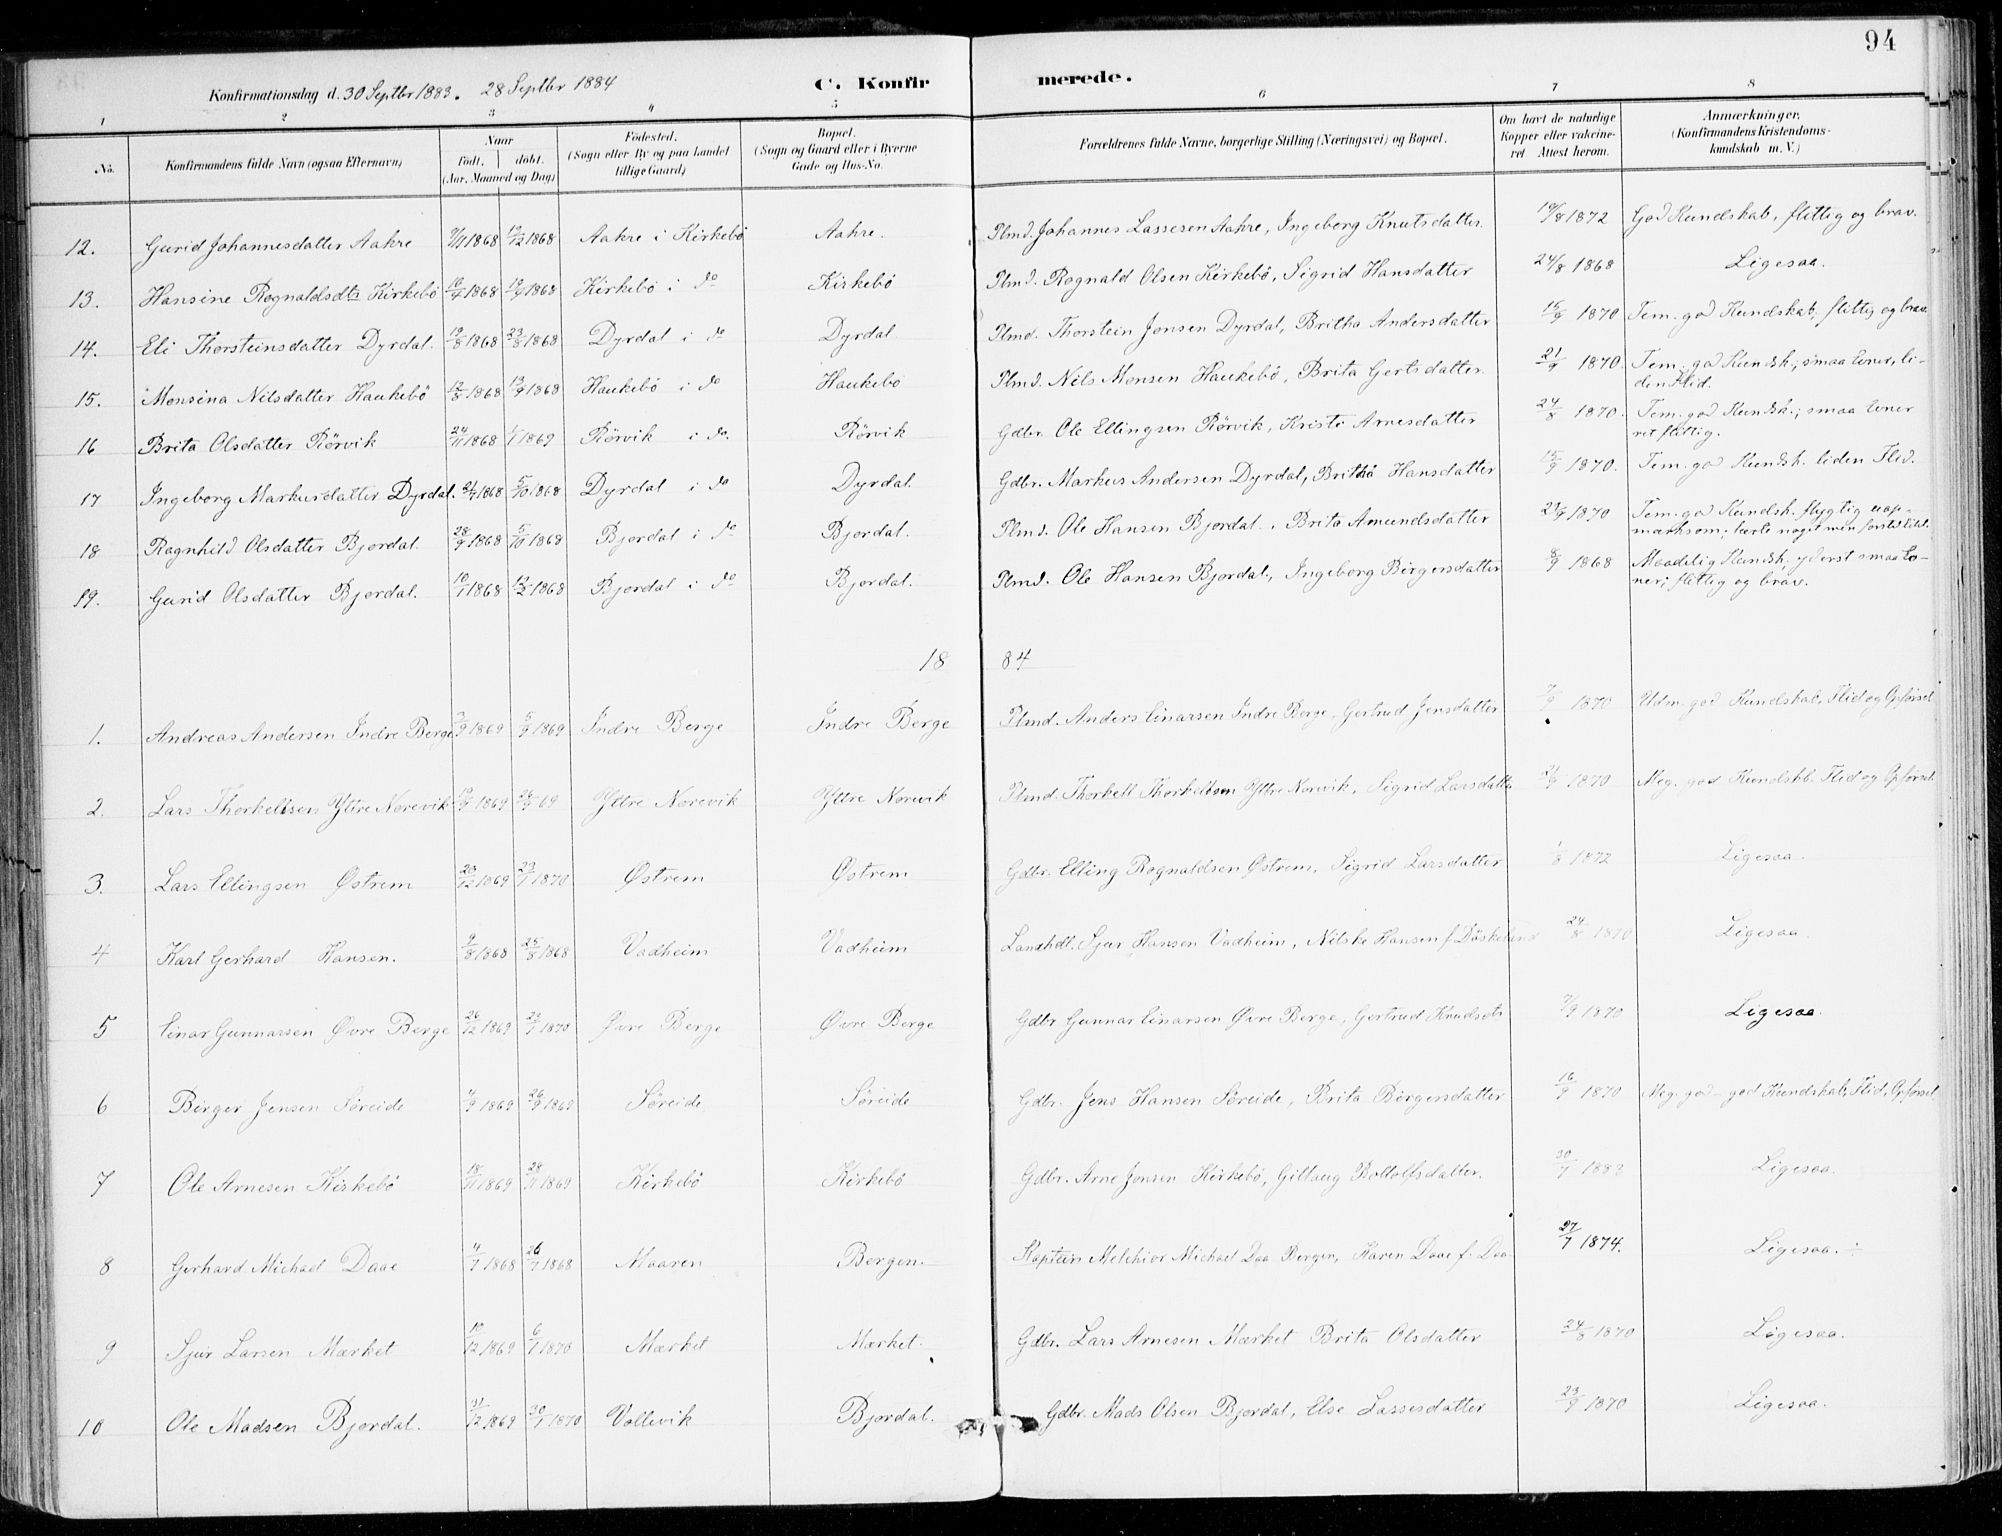 94
Konfirmationsdag d. 30 Septbr 1883. 28 Septbr 1884 C. Konfirmerede.
1 2 3 4 5 6 7 8
No. Konfirmandens fulde Navn (ogsaa Efternavn) Naar født, døbt. (Aar, Maaned og Dag) Fødested. (Sogn eller By og paa Landet tillige Gaard) Bopæl. (Sogn og Gaard eller i Byerne Gade og Hus-No. Forældrenes fulde Navne, borgerlige Stilling (Næringsvei) og Bopæl. Om havt de naturlige Kopper eller vakcineret Attest herom. Anmærkninger. (Konfirmandens Kristendomskundskab m. V.)
12. Gurid Johannesdatter Aahre 1868 1868 Aahre i Kirkebö Aahre. Plmd. Johannes Lassesen Aahre, Ingeborg Knutsdatter 19/8 1872 God Kundskab, flittig og brav.
13. Hansine Rognaldsdtr Kirkebö 1868 1868 Kirkebö i do Kirkebö Plmd. Rognald Olsen Kirkebö, Sigrid Hansdatter 24/8 1868 Ligesaa.
14. Eli Thorsteinsdatter Dyrdal. 19/8 1868 23/8 1868 Dyrdal i do Dyrdal Plmd. Thorstein Jonsen Dyrdal, Britha Andersdatter 15/9 1870 Tem. god Kundskab, flittig og brav.
15. Monsina Nilsdatter Haukebö 12/8 1868 13/9 1868 Haukebö i do Haukebö Plmd. Nils Monsen Haukebö, Brita Gertsdatter 21/9 1870. Tem. god Kundsk; smaa Evner, liden Flid.
16 Brita Olsdatter Rörvik 24/11 1868 1/1 1869 Rörvik i do. Rörvik Gdbr. Ole Ellingsen Rörvik, Kristi Arnesdatter 24/8 1870. Tem. god Kundsk.; smaa Evner ret flittig.
17 Ingeborg Markusdatter Dyrdal. 1868 5/10 1868 Dyrdal i do Dyrdal. Gdbr. Markus Andersen Dyrdal, Britha Hansdatter 15/9 1870. Tem. god Kundsk. liden Flid.
18 Ragnhild Olsdatter Bjordal. 28/9 1868 5/10 1868 Bjordal i do Bjordal. Plmd. Ole Hansen Bjordal., Brita Amundsdatter 21/9 1870 Tem. god Kundsk. flygtig uopmærksom; lærte noget men forstod lidt.
19. Gurid Olsdatter Bjordal. 10/1 1868 12/2 1868 Bjordal i do Bjordal. Plmd. Ole Hansen Bjordal., Ingeborg Birgersdatter 8/9 1868 Maadelig Kundsk. yderst smaa Evner; flittig og brav.
1884
1. Andreas Andersen Indre Berge 1869 5/9 1869 Indre Berge Indre Berge Plmd. Anders Einarsen Indre Berge, Gertrud Jensdatter 7/9 1870 Udm. god Kundskab, Flid og Opførsel
2. Lars Thorkellsen Yttre Norevik 1869 69 Yttre Norevik Yttre Norevik Plmd. Thorkell Thorkellsen Yttre Norvik, Sigrid Larsdatter 21/9 1870 Meg. god Kundskb. Flid og Opførsel
3. Lars Ellingsen Østrem 20/12 1869 23/1 1870 Østrem Østrem Gdbr. Elling Rognaldsen Østrem, Sigrid Larsdatter 1/8 1872 Ligesaa.
4 Karl Gerhard Hansen. 9/8 1868 25/8 1868 Vadheim Vadheim Landhdl. Sjur Hansen Vadheim, Nilske Hansen f. Döskeland 24/8 1870 Ligesaa.
5 Einar Gunnarsen Øvre Berge 26/12 1869 23/1 1870 Øvre Berge Øvre Berge Gdbr Gunnar Einarsen Øvre Berge, Gertrud Knudsdtr 7/9 1870 Ligesaa.
6 Birger Jensen Søreide 4/9 1869 26/9 1869 Søreide Søreide Gdbr. Jens Hansen Søreide, Brita Birgersdatter 16/9 1870 Meg. god - god Kundskab, Flid, Opførsel
7 Ole Arnesen Kirkebö 18/11 1869 28/11 1869 Kirkebö Kirkebö Gdbr. Arne Jonsen Kirkebö, Gitlaug Bottolfsdatter. 30/7 1883 Ligesaa.
8 Gerhard Michael Daae 4/7 1868 26/7 1868 Maaren Bergen. Kaptein Melchior Michael Daa Bergen, Karen Daae f. Daa 27/7 1874. Ligesaa. ÷
9 Sjur Larsen Mærket 10/12 1869 6/1 1870 Mærket Mærket. Gdbr. Lars Arnesen Mærket Brita Olsdatter 24/8 1870 Ligesaa.
10 Ole Madsen Bjordal. 31/12 1869 30/1 1870 Vollevik Bjordal. Gdbr. Mads Olsen Bjordal, Else Lassesdatter 23/9 1870 Ligesaa.